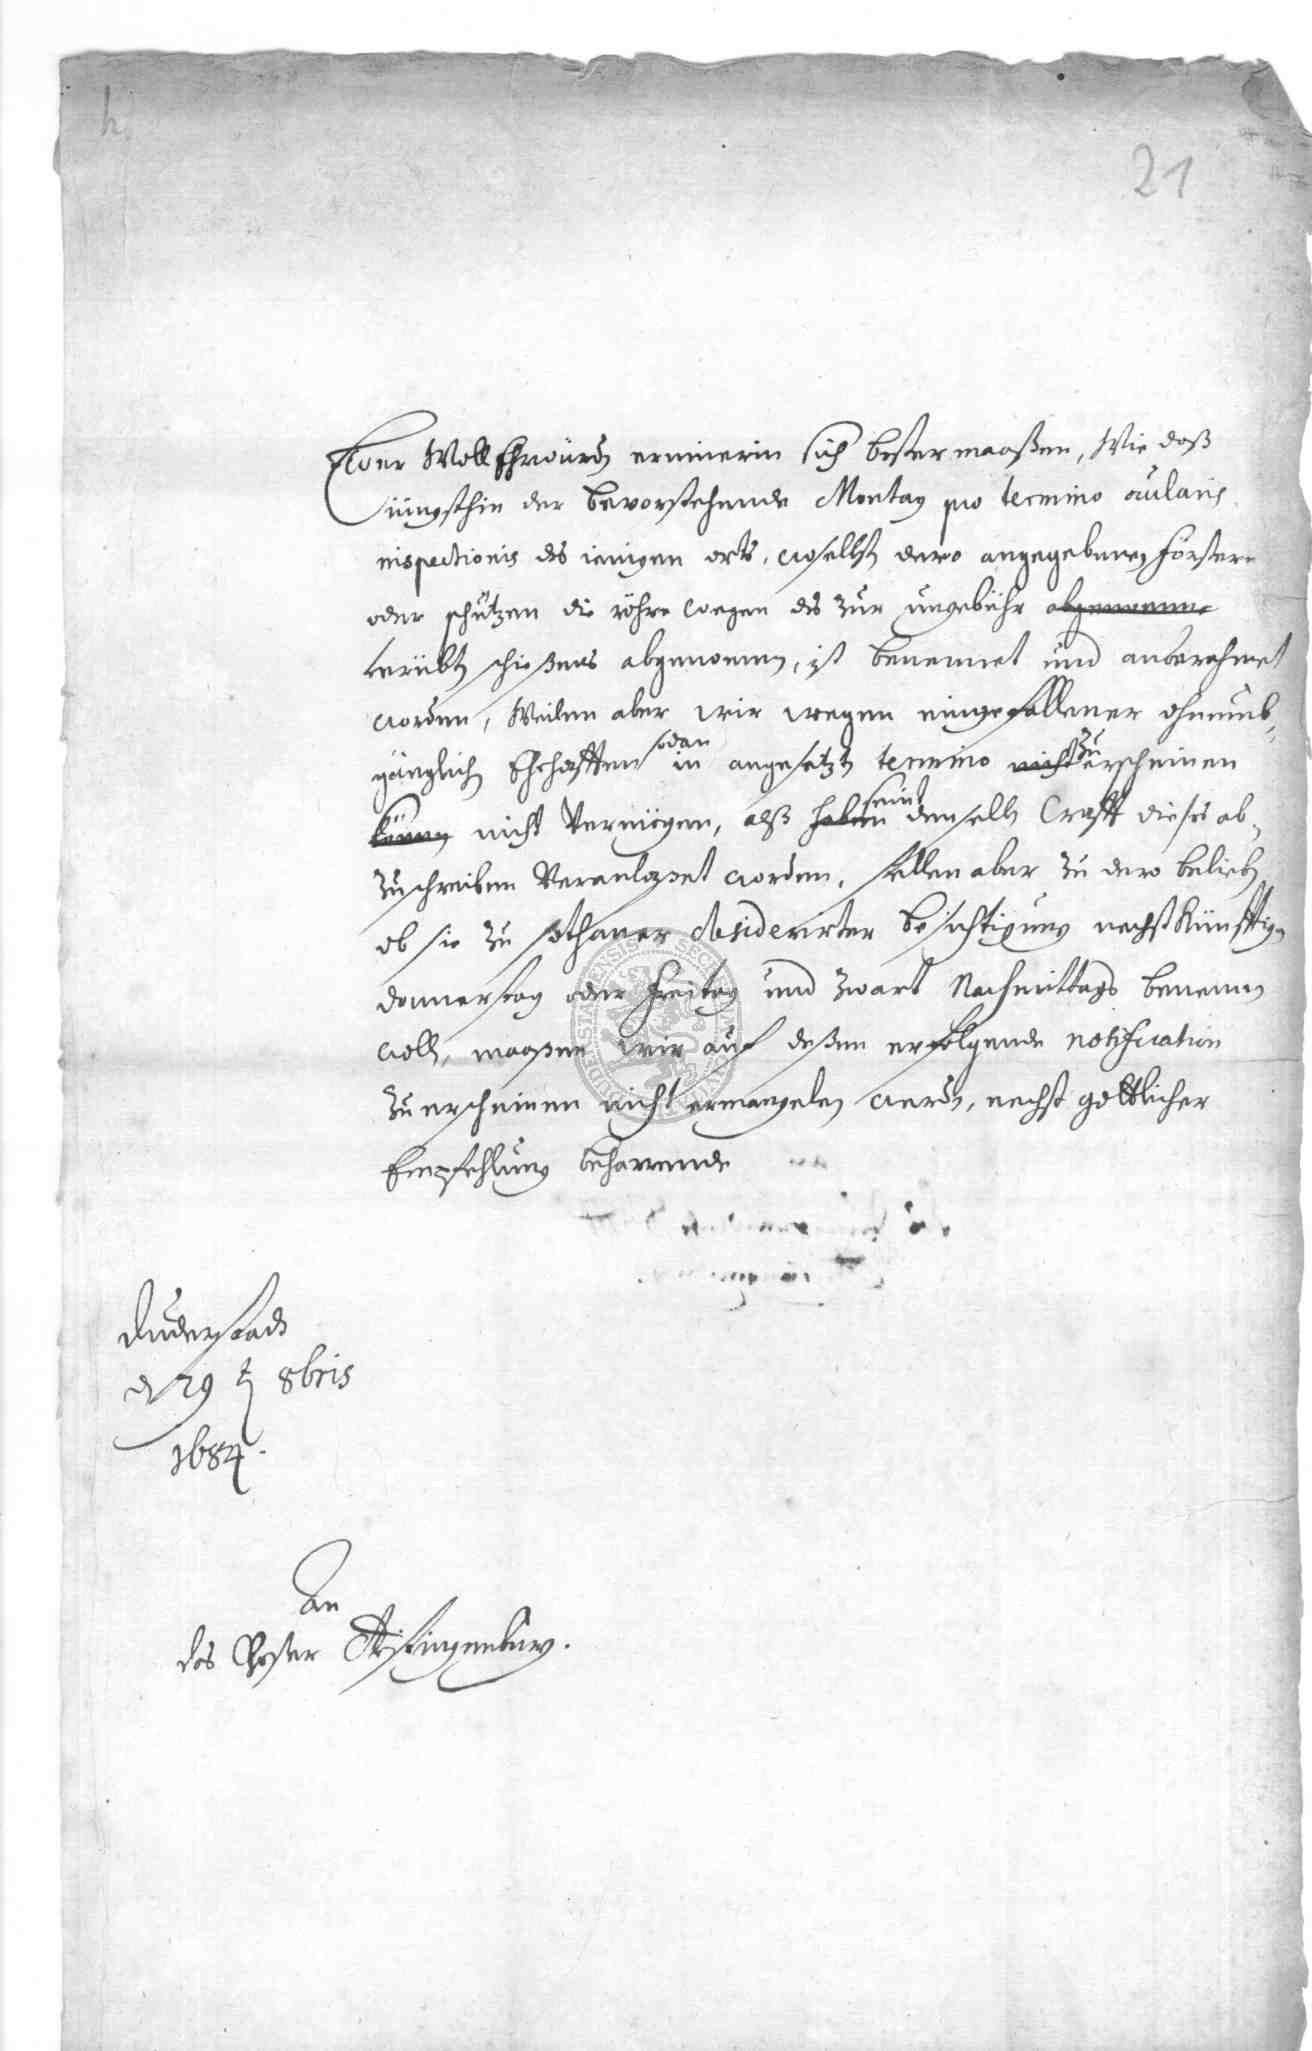 h
21
Ewer Woll Ehrwürd erinnerin sich bester maaßen, Wie daß
jüngsthin der bevorstehende Montag pro termino ocularis
inspectionis des jenigen orts, woselbst dero angegebenen förster
oder schützen die röhre wegen des zur ungebühr abgenomme
verübten schießens abgenommen, ist benennet und anberahmet
worden, Weilen aber wir wegen eingefallener ohnumb-
gänglich Ehehafften sodan in angesetzt termino nicht zu erscheinen
können nicht Vermögen, alß haben seint denselb Crafft dieses ab-
zuschreiben Veranlaßet worden, stellen aber zu dero belieben
ob sie zu sothaner desiderirter besichtigung nechstkünfftig
donnerstag oder freitag und zwart Nachmittags benennen
woll, maaßen wir auf deßen erfolgende notification
zu erscheinen nicht ermangelen werden, nechst göttlicher
Empfehlung beharrende
Duderstadt
d 29 t 8bris
1684.
An
das Closter Teistungenburg.